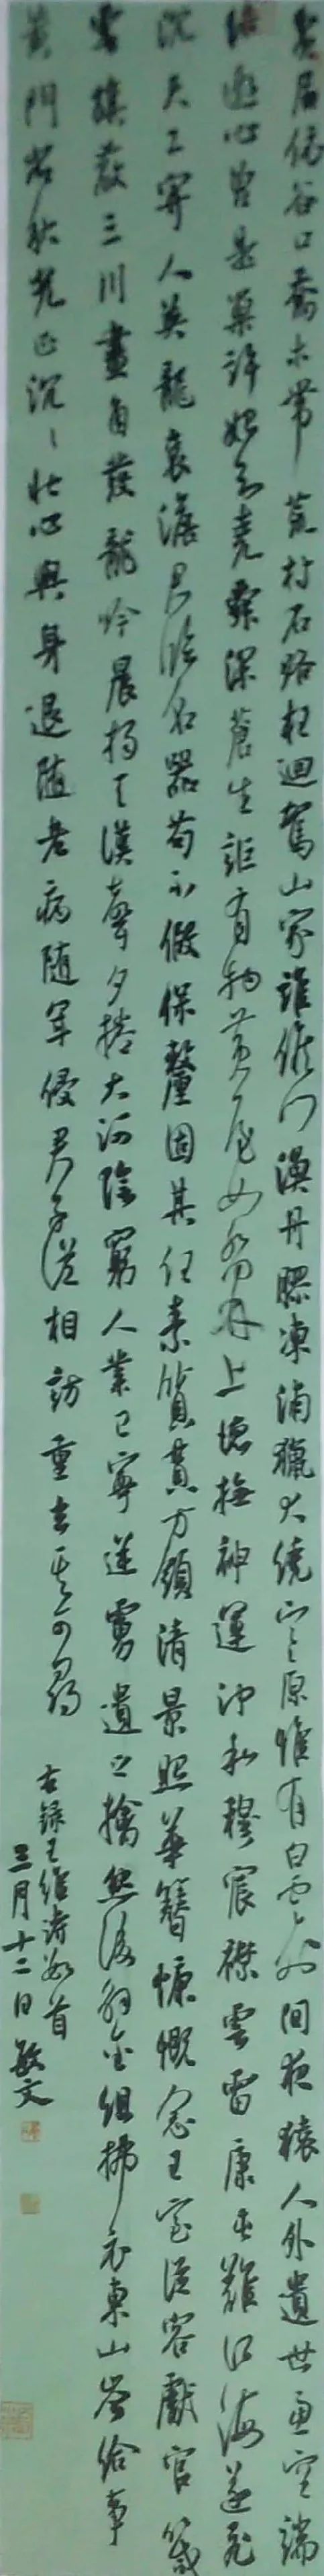 貧居依谷口喬木帶荒村石路枉迴駕山家誰候門漁舟膠凍浦獵火燒寒原惟有白雲外間夜猿人外遺世慮空端
結遐心曾是巢許始知堯舜深蒼生詎有物黃屋如喬林上德撫神運沖和穆宸襟雲雷康屯難江海遂飛
沉天工寄人英龍袞瞻君臨名器苟不假保釐固其任素質貫方領清景照華簪慷慨念王室從容獻官箴
雲旗蔽三川畫角發龍吟晨揚天漢聲夕捲大河陰窮人業已寧逆虜遺之擒然後解金組拂衣東山岑給事
黃門省秋光正沉〻壯心與身退隨老病隨年侵君子從相訪重玄其可尋
右録王維詩數首
三月十二日 敏文